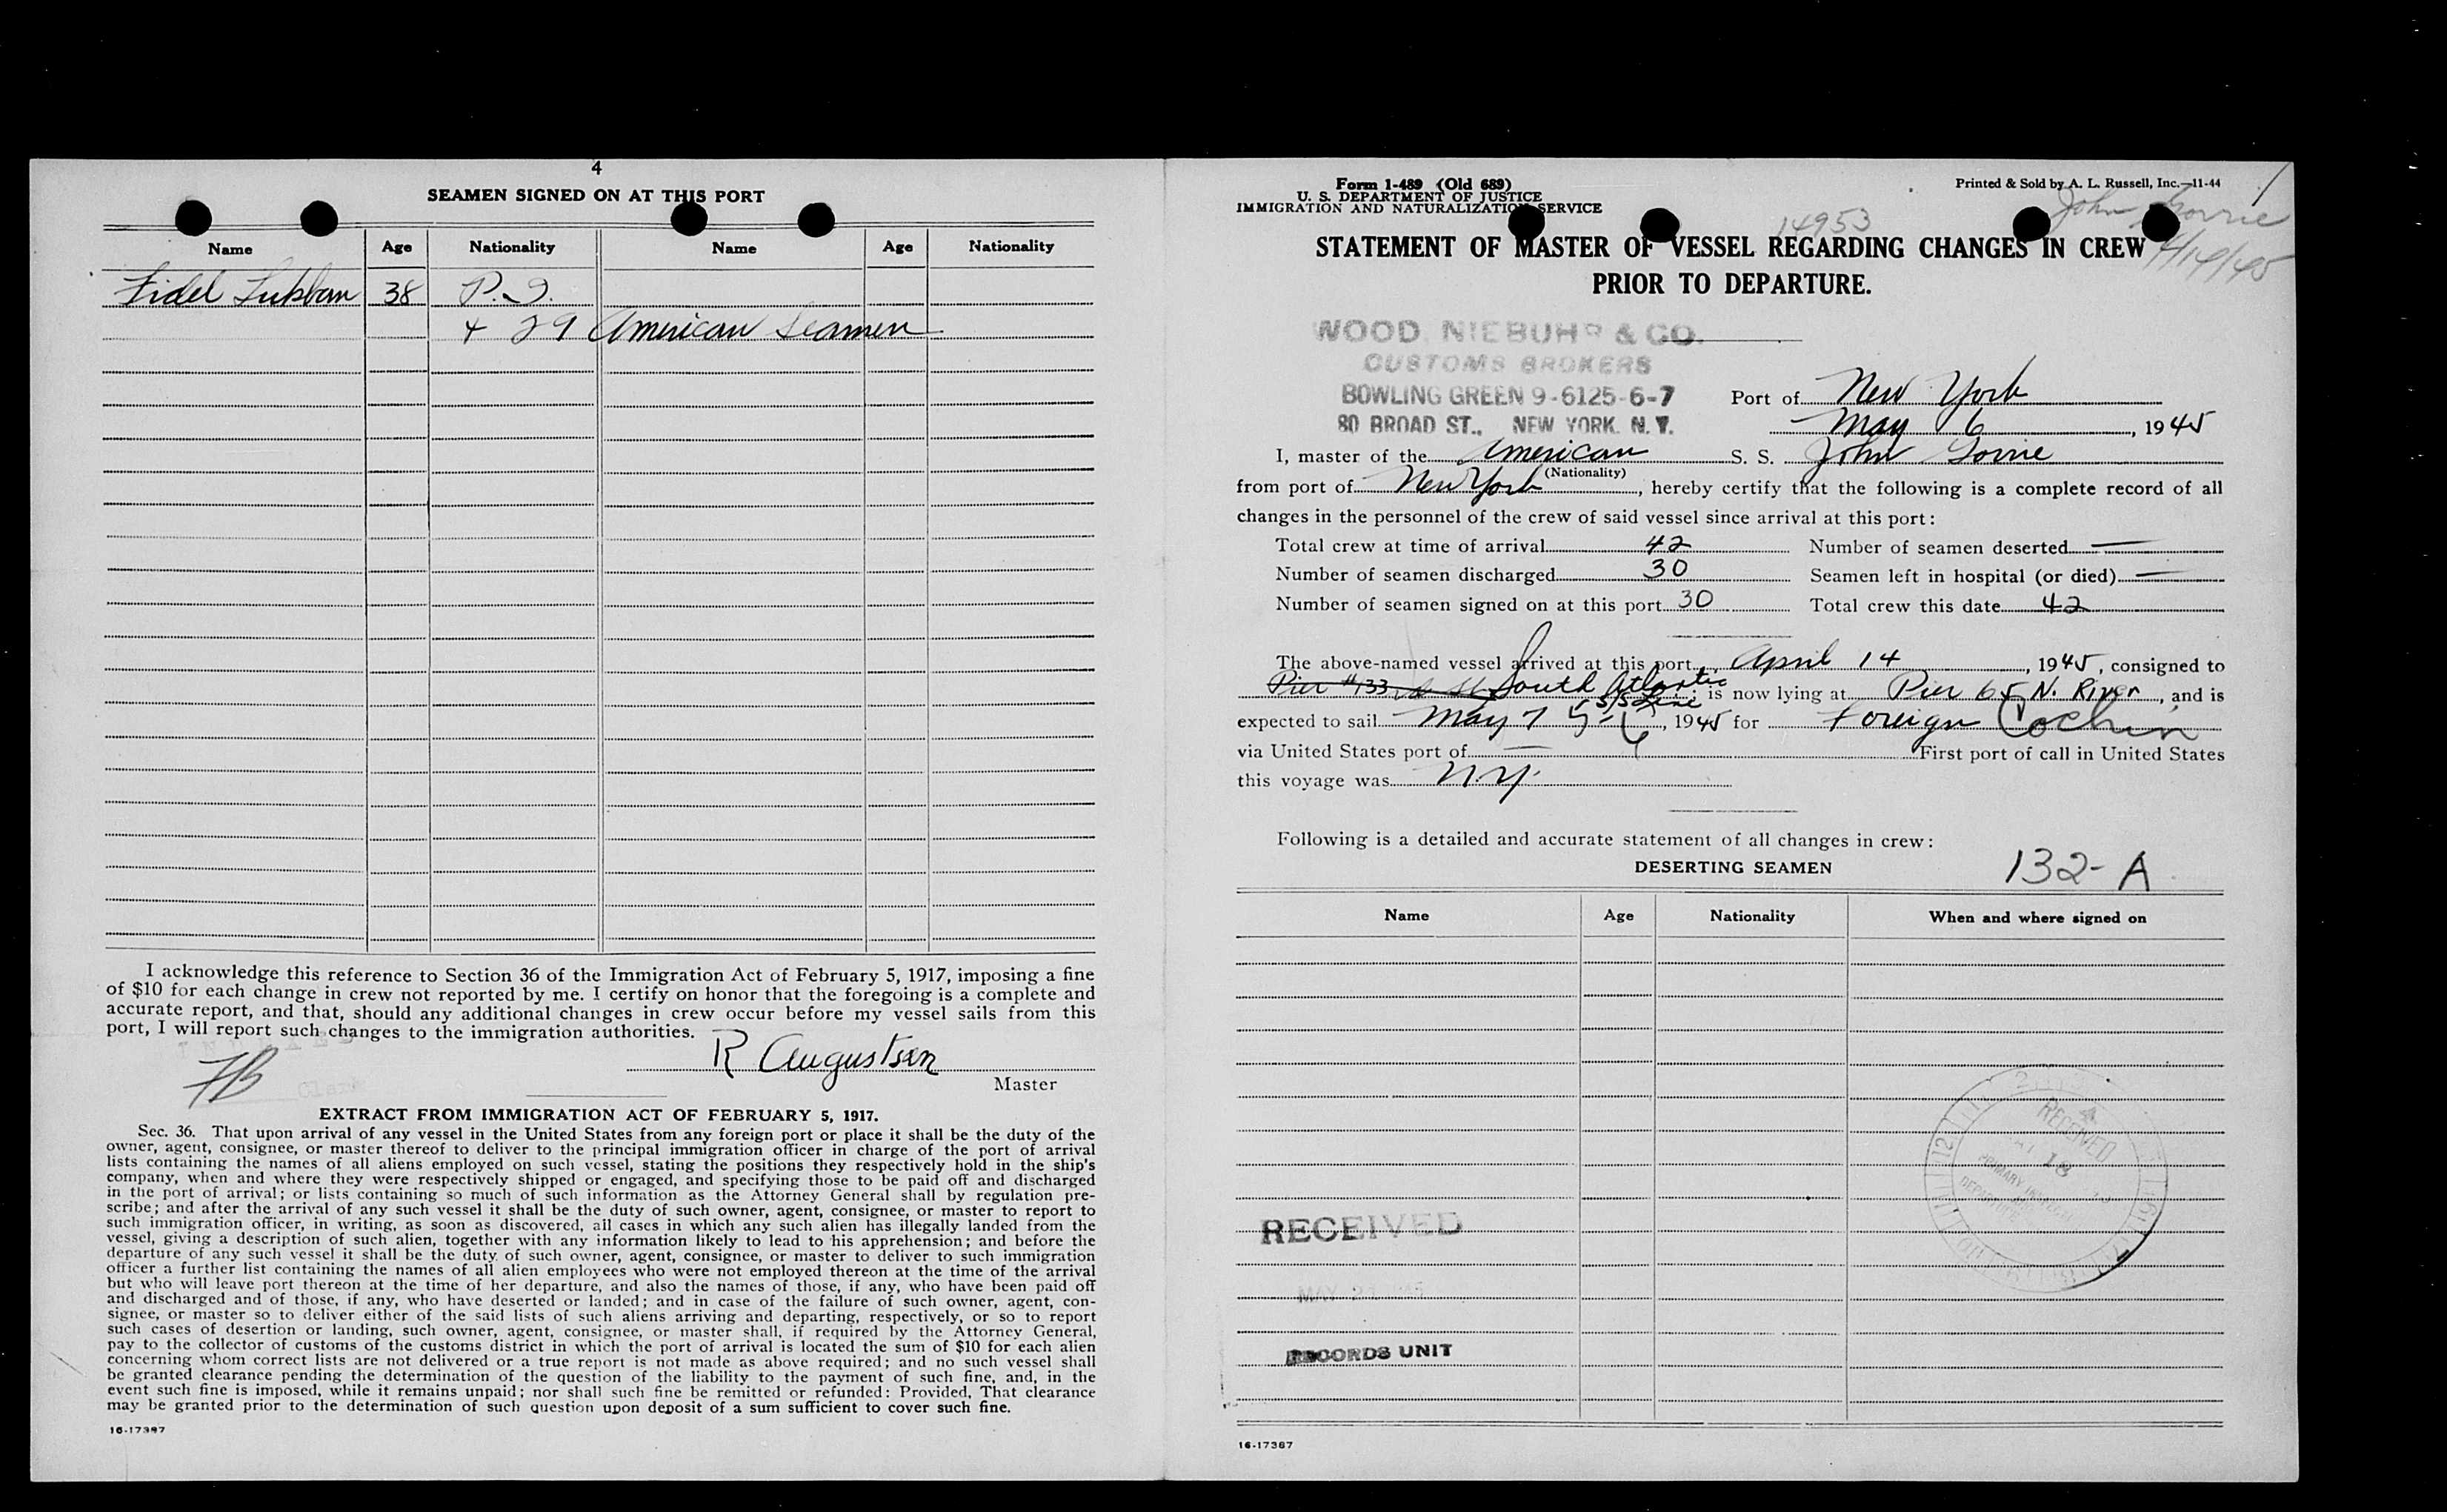 4
SEAMEN SIGNED ON AT THIS PORT
Name Age Nationality Name Age Nationality
Fidel Lukban 38 P.I.
+ 29 American Seamen
I acknowledge this reference to Section 36 of the Immigration Act of February 5, 1917, imposing a fine
of $10 for each change in crew not reported by me. I certify on honor that the foregoing is a complete and
accurate report, and that, should any additional changes in crew occur before my vessel sails from this
port, I will report such changes to the immigration authorities.
R Augustsen
Master
EXTRACT FROM IMMIGRATION ACT OF FEBRUARY 5, 1917.
Sec. 36. That upon arrival of any vessel in the United States from any foreign port or place it shall be the duty of the
owner, agent, consignee, or master thereof to deliver to the principal immigration officer in charge of the port of arrival
lists containing the names of all aliens employed on such vessel, stating the positions they respectively hold in the ship's
company, when and where they were respectively shipped or engaged, and specifying those to be paid off and discharged
in the port of arrival; or lists containing so much of such information as the Attorney General shall by regulation pre-
scribe; and after the arrival of any such vessel it shall be the duty of such owner, agent, consignee, or master to report to
such immigration officer, in writing, as soon as discovered, all cases in which any such alien has illegally landed from the
vessel, giving a description of such alien, together with any information likely to lead to his apprehension; and before the
departure of any such vessel it shall be the duty of such owner, agent, consignee, or master to deliver to such immigration
officer a further list containing the names of all alien employees who were not employed thereon at the time of the arrival
but who will leave port thereon at the time of her departure, and also the names of those, if any, who have been paid off
and discharged and of those, if any, who have deserted or landed; and in case of the failure of such owner, agent, con-
signee, or master so to deliver either of the said lists of such aliens arriving and departing, respectively, or so to report
such cases of desertion or landing, such owner, agent, consignee, or master shall, if required by the Attorney General,
pay to the collector of customs of the customs district in which the port of arrival is located the sum of $10 for each alien
concerning whom correct lists are not delivered or a true report is not made as above required; and no such vessel shall
be granted clearance pending the determination of the question of the liability to the payment of such fine, and, in the
event such fine is imposed, while it remains unpaid; nor shall such fine be remitted or refunded: Provided, That clearance
may be granted prior to the determination of such question upon deposit of a sum sufficient to cover such fine.
16-17387
Form 1-489 (Old 689)
U. S. DEPARTMENT OF JUSTICE
IMMIGRATION AND NATURALIZATION SERVICE
Printed & Sold by A. L. Russell, Inc.—11-44
John Gorrie
4/14/45
14953
STATEMENT OF MASTER OF VESSEL REGARDING CHANGES IN CREW
PRIOR TO DEPARTURE.
WOOD, NIEBUHR & CO.
CUSTOMS BROKERS
BOWLING GREEN 9-6125-6-7
80 BROAD ST., NEW YORK, N. Y.
Port of New York
May 6, 1945
I, master of the American S. S. John Gorrie
(Nationality)
from port of New York, hereby certify that the following is a complete record of all
changes in the personnel of the crew of said vessel since arrival at this port:
Total crew at time of arrival 42 Number of seamen deserted —
Number of seamen discharged 30 Seamen left in hospital (or died) —
Number of seamen signed on at this port 30 Total crew this date 42
The above-named vessel arrived at this port April 14, 1945, consigned to
Pier #133 South Atlantic S/S Line; is now lying at Pier 65 N. River, and is
expected to sail May 7, 1945 for Foreign Cochin
via United States port of — First port of call in United States
this voyage was N.Y.
Following is a detailed and accurate statement of all changes in crew:
DESERTING SEAMEN
132-A
Name Age Nationality When and where signed on
RECEIVED
18
RECEIVED
RECORDS UNIT
16-17387